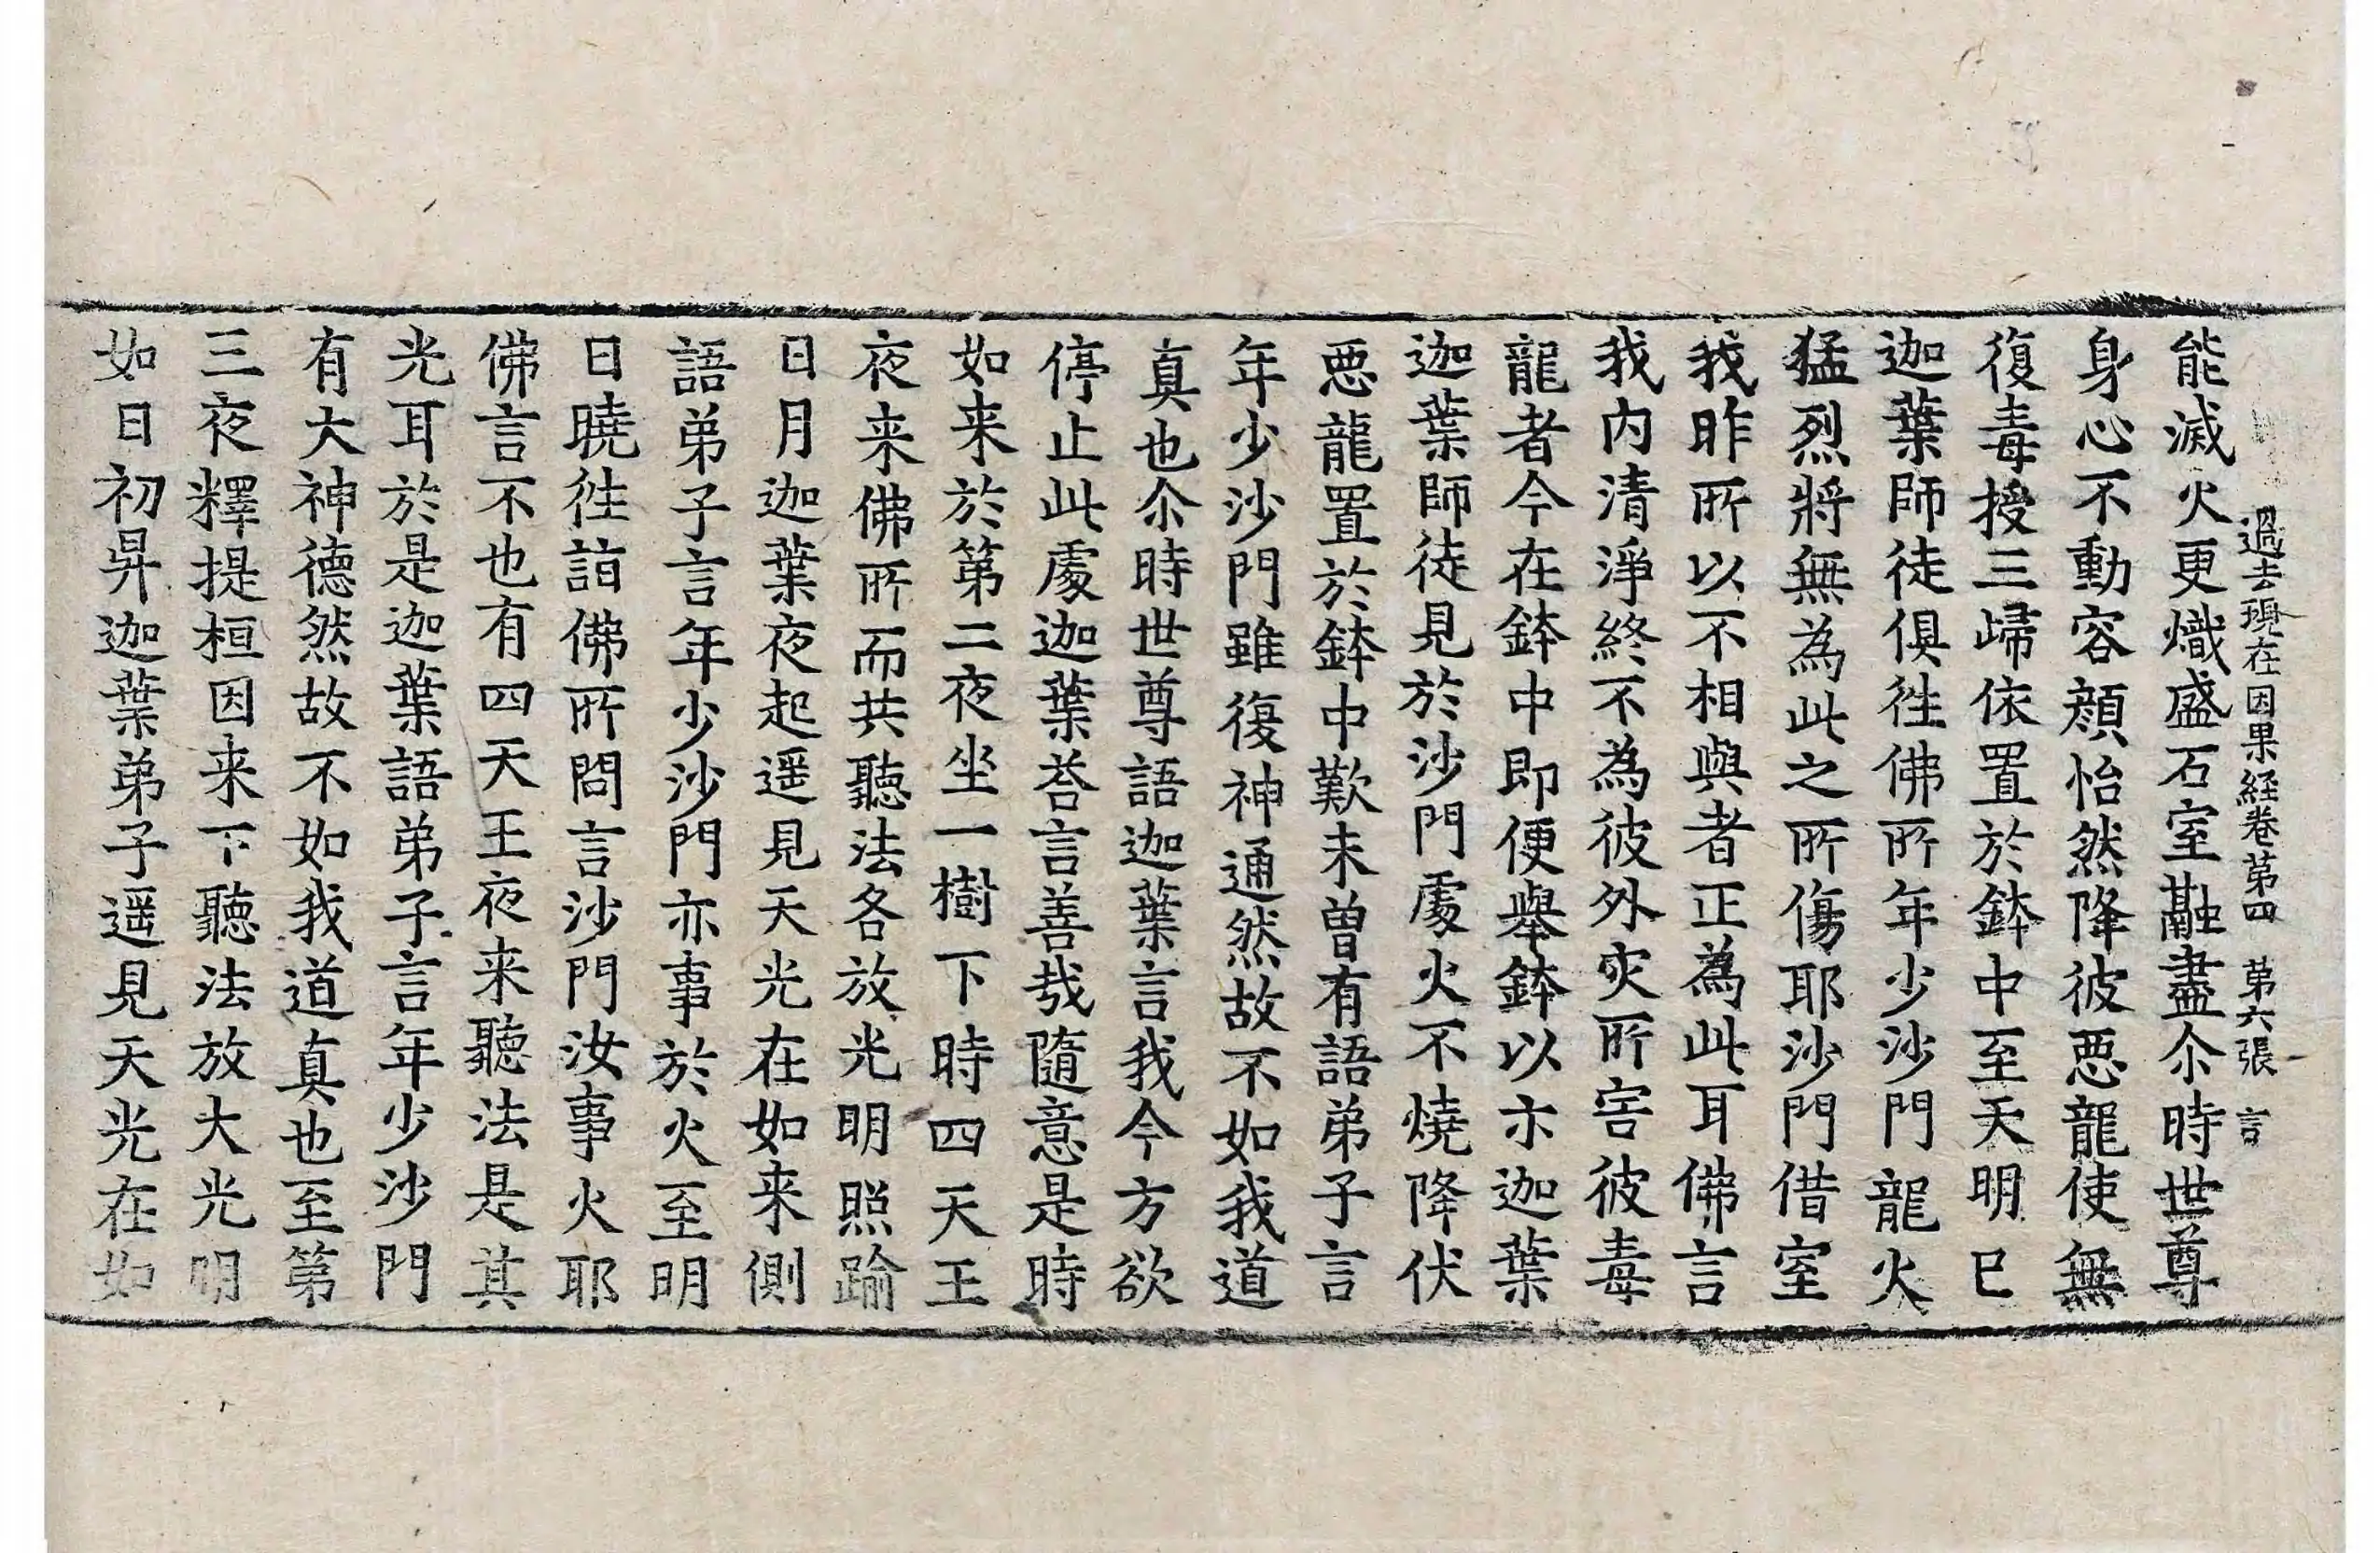 過去現在因果経卷苐四 苐六張 言
能滅火更熾盛石室融盡尒時世尊
身心不動容顔怡然降彼悪龍使無
復毒授三歸依置於鉢中至天明已
迦葉師徒俱徃佛所年少沙門龍火
猛烈將無為此之所傷耶沙門借室
我昨所以不相與者正為此耳佛言
我内清淨終不為彼外灾所害彼毒
龍者今在鉢中即便舉鉢以示迦葉
迦葉師徒見於沙門處火不燒降伏
悪龍置於鉢中歎未曽有語弟子言
年少沙門雖復神通然故不如我道
真也尒時世尊語迦葉言我今方欲
停止此處迦葉荅言善哉隨意是時
如来於第二夜坐一樹下時四天王
夜来佛所而共聽法各放光明照踰
日月迦葉夜起遥見天光在如来側
語弟子言年少沙門亦事於火至明
日曉徃詣佛所問言沙門汝事火耶
佛言不也有四天王夜来聽法是其
光耳於是迦葉語弟子言年少沙門
有大神德然故不如我道真也至第
三夜釋提桓因来下聽法放大光明
如日初昇迦葉弟子遥見天光在如